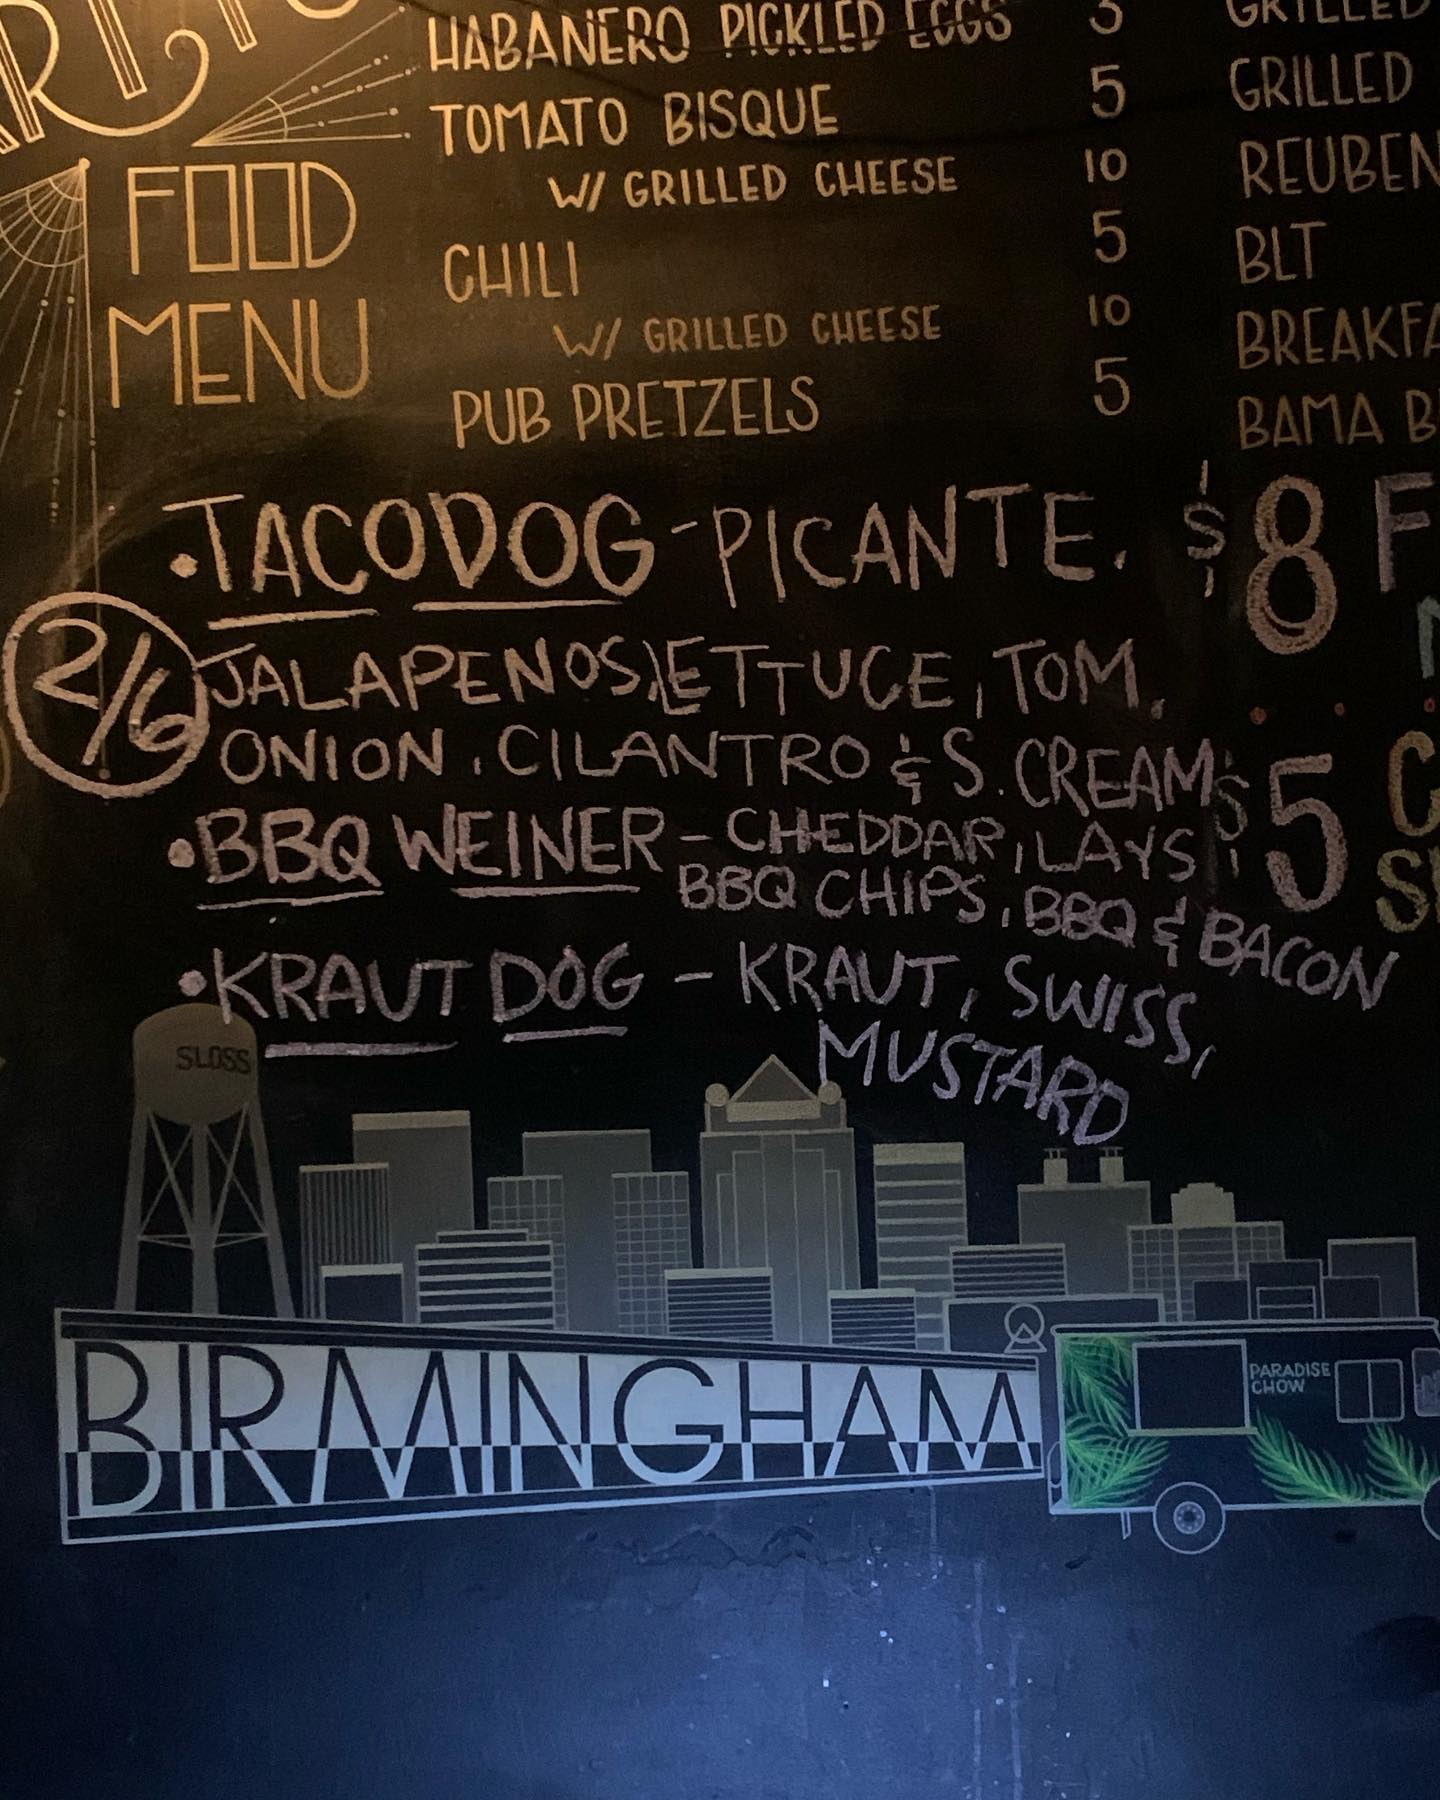 HABANERO PICKLED EGGS 3
TOMATO BISQUE 5
W/ GRILLED CHEESE 10
CHILI 5
W/ GRILLED CHEESE 10
PUB PRETZELS 5
FOOD
MENU
GRILLED
GRILLED
REUBEN
BLT
BAMA
•TACODOG-PICANTE.
2/6
JALAPENOS, LETTUCE, TOM,
ONION, CILANTRO & S. CREAM
•BBQ WEINER - CHEDDAR, LAYS
BBQ CHIPS, BBQ & BACON
•KRAUT DOG - KRAUT, SWISS,
MUSTARD
$8
$5
SLOSS
BIRMINGHAM
PARADISE
CHOW